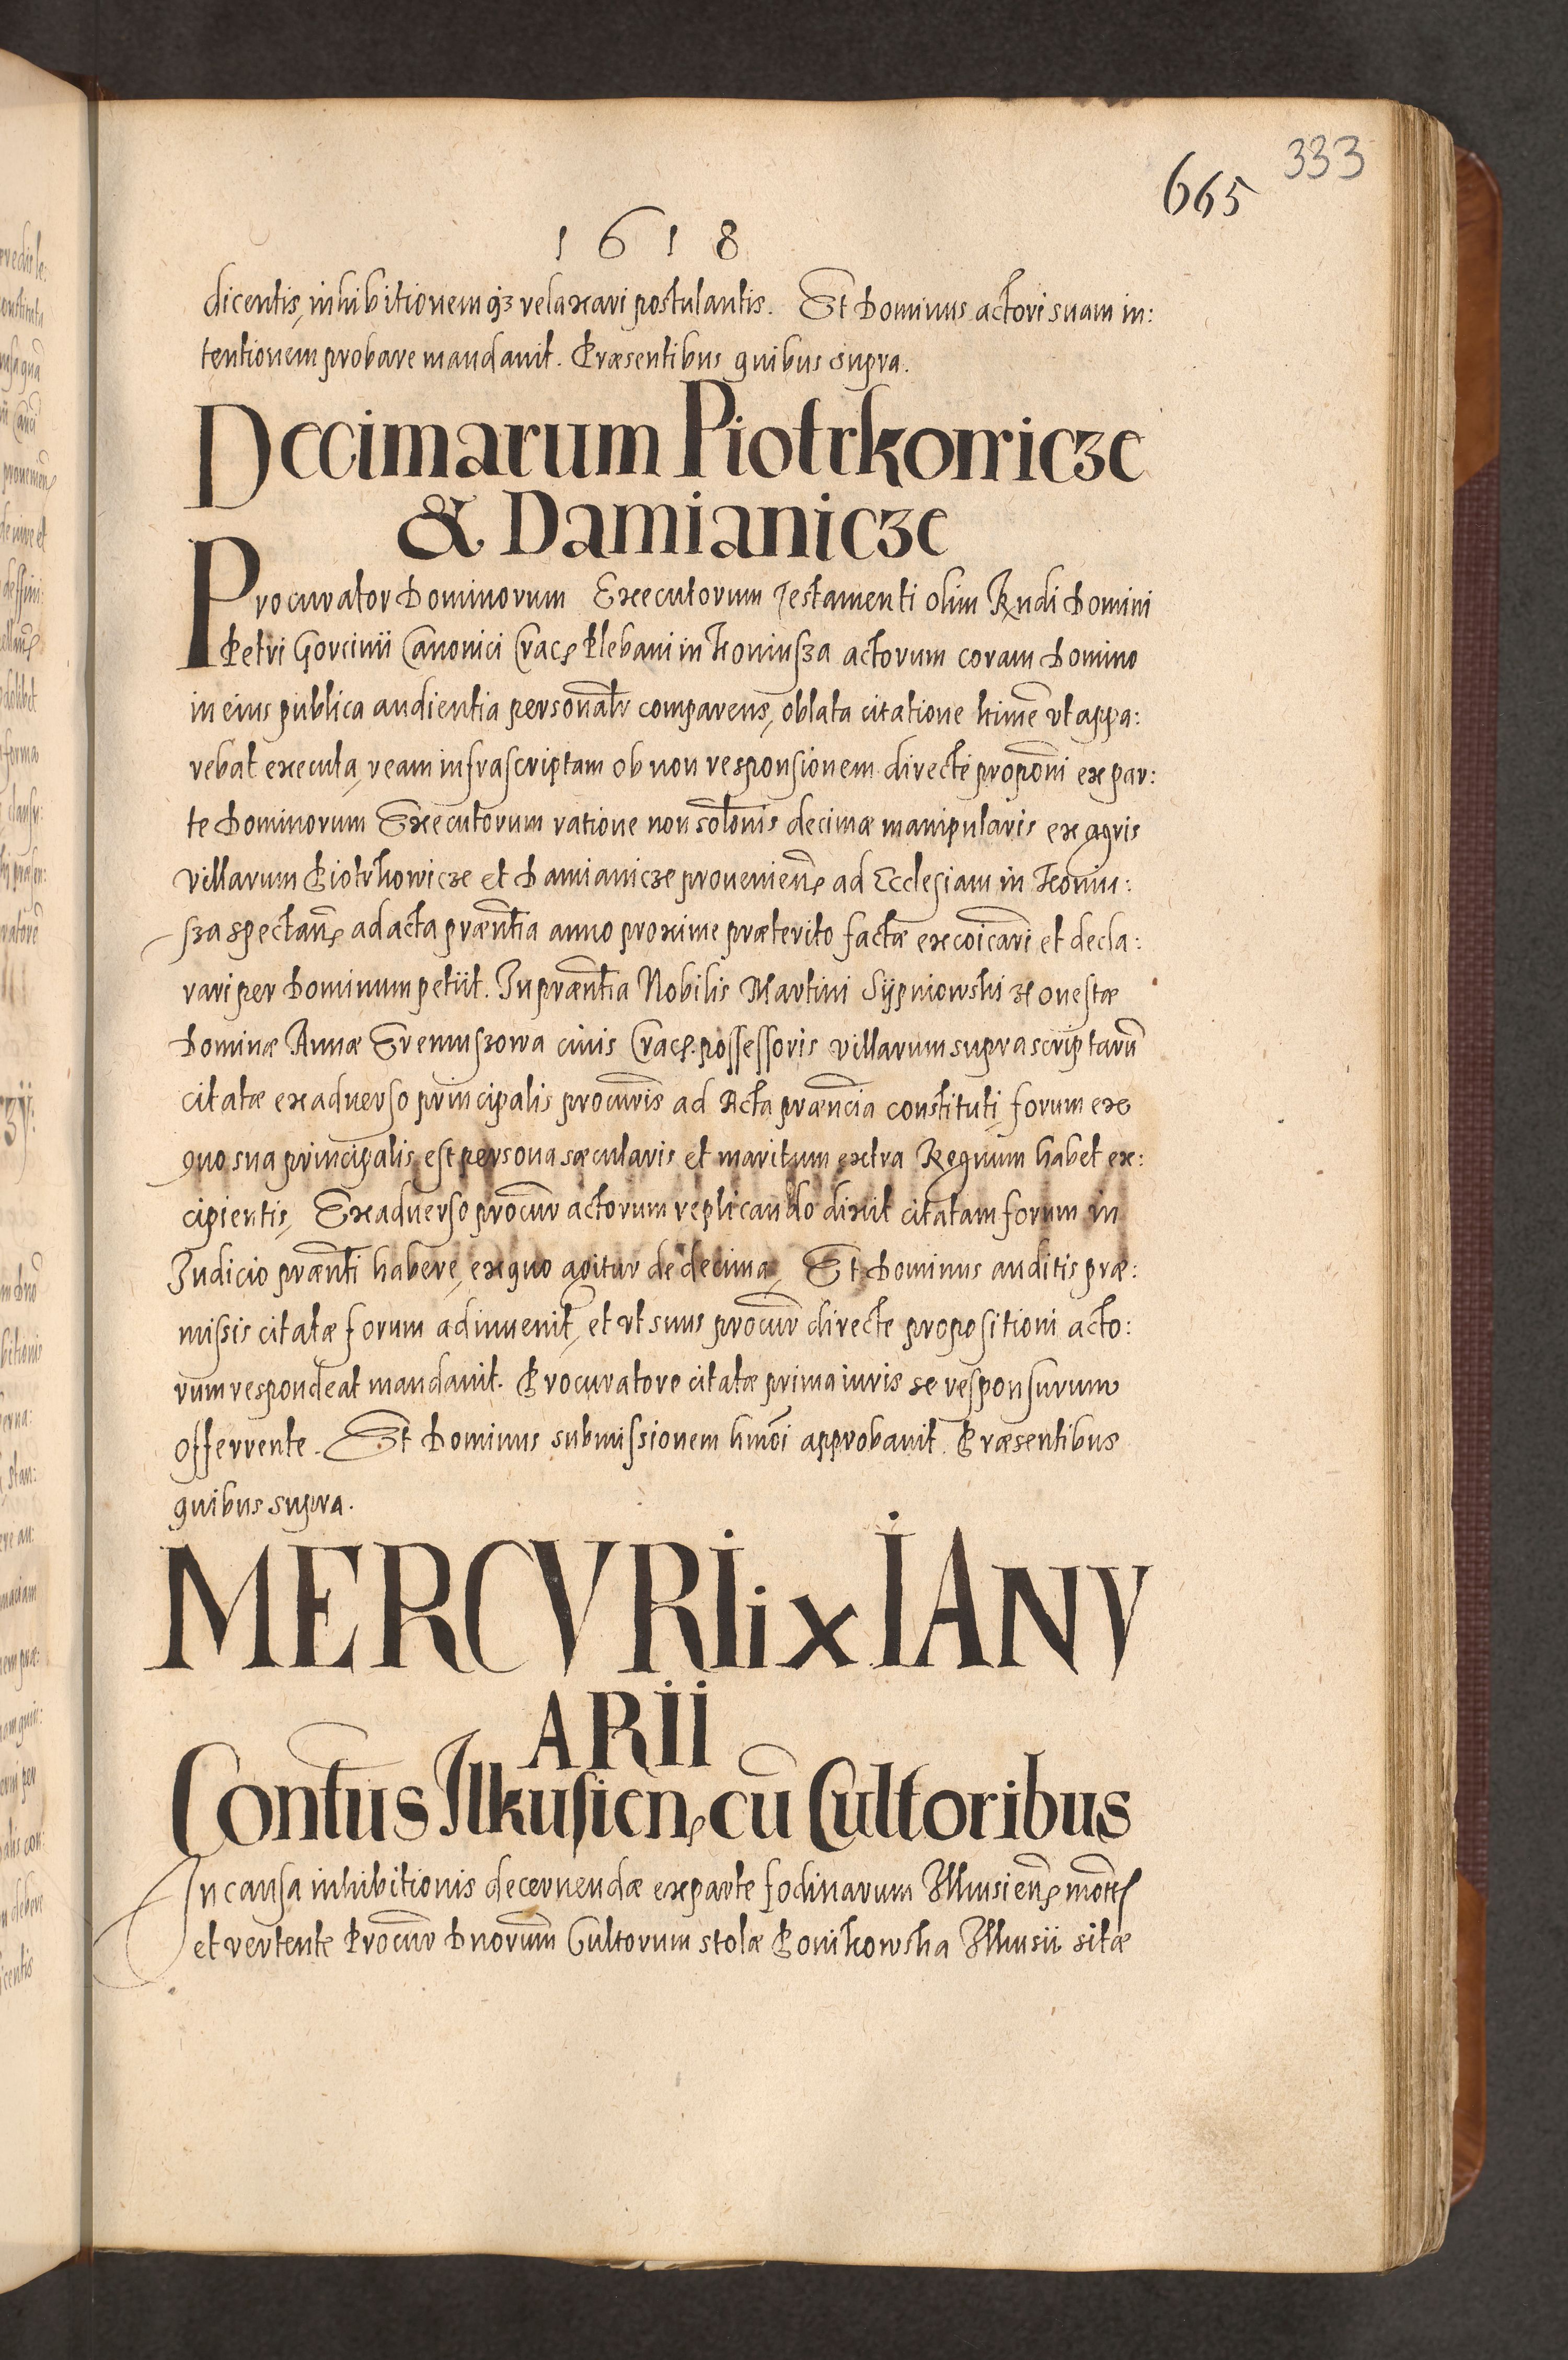 333
665
1618
dicentis, inhibitionemqȝ relaxari postulantis. Et Dominus actori suam in:
tentionem probare mandauit. Præsentibus quibus supra.
Decimarum Piotrkowicze
& Damianicze
Procurator Dominorum Executorum Testamenti olim Rndi Domini
Petri Gorcinii Canonici Crac: Plebani in Koniusza actorum coram Domino
in eius publica audientia personalr comparens, oblata citatione ltime vt appa:
rebat executa, ream infrascriptam ob non responsionem directe proponi ex par:
te Dominorum Executorum ratione non solonis decimæ manipularis ex agris
villarum Piotrkowicze et Damianicze prouenien: ad Ecclesiam in Koniu:
sza spectan: ad acta præntia anno proxime præterito factæ excoicari et decla:
rari per Dominum petiit. In præntia Nobilis Martini Sypniowski Honestæ
Dominæ Annæ Eremuszowa ciuis Crac: possessoris villarum suprascriptarū
citatæ ex aduerso principalis procuris ad Acta præncia constituti, forum ex
quo sua principalis est persona sæcularis et maritum extra Regnum habet ex:
cipientis, Ex aduerso procur actorum replicando dixit citatam forum in
Iudicio prænti habere, ex quo agitur de decima, Et Dominus auditis præ:
missis citatæ forum adinuenit, et vt suus procur directe propositioni acto:
rum respondeat mandauit. Procuratore citatæ prima iuris se responsurum
offerrente. Et Dominus submissionem hmoi approbauit. Præsentibus
quibus supra.
MERCVRII ix IANV
ARII
Contus Ilkusien: cū Cultoribus
In causa inhibitionis decernendæ ex parte fodinarum Ilkusien: mottæ
et vertente Procur Dnorum Cultorum stolæ Ponikowska Ilkusii sitæ